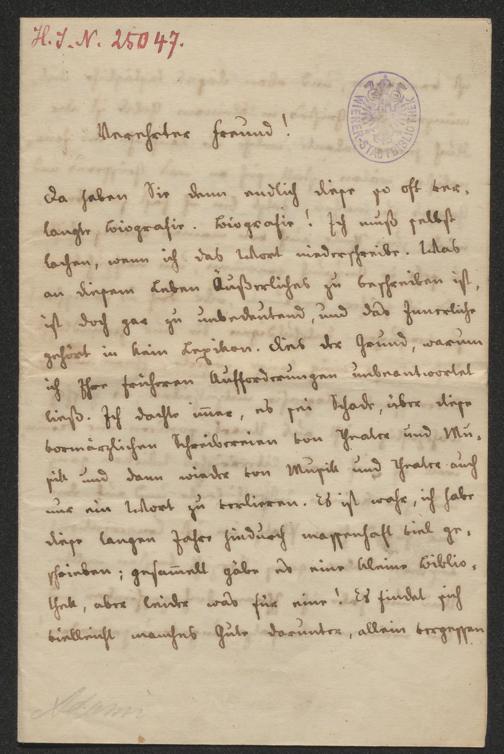 H. I. N. 25047.
WIENER STADTBIBLIOTHEK
Verehrter Freund!
Da haben Sie denn endlich diese so oft ver-
langte Biografie. Biografie! Ich muß selbst
lachen, wenn ich das Wort niederschreibe. Was
an diesem Leben Äußerliches zu beschreiben ist,
ist doch gar zu unbedeutend, und das Innerliche
gehört in kein Lexikon. Dies der Grund, warum
ich Ihre früheren Aufforderungen unbeantwortet
ließ. Ich dachte immer, es sei Schade, über diese
vormärzlichen Schreibereien von Theater und Mu-
sik und dann wieder von Musik und Theater auch
nur ein Wort zu verlieren. Es ist wahr, ich habe
diese langen Jahre hindurch massenhaft viel ge-
schrieben; gesammelt gäbe es eine kleine Biblio-
thek, aber leider was für eine! Es findet sich
vielleicht manches Gute darunter, allein vergessen
Adami